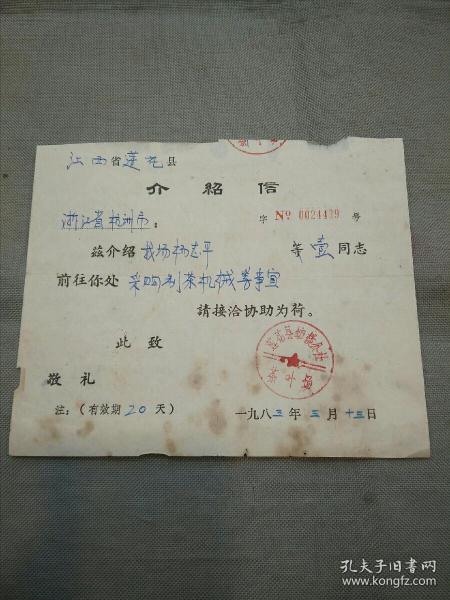 江西省莲花县
介紹信
浙江省杭州市：
字 № 0024439 号
兹介绍 我场杨志平 等 壹 同志
前往你处 采购制茶机械等事宜
請接洽协助为荷。
此致
敬礼
注：（有效期 20 天）
一九八三年 三 月 十三 日
孔夫子旧书网
www.kongfz.com